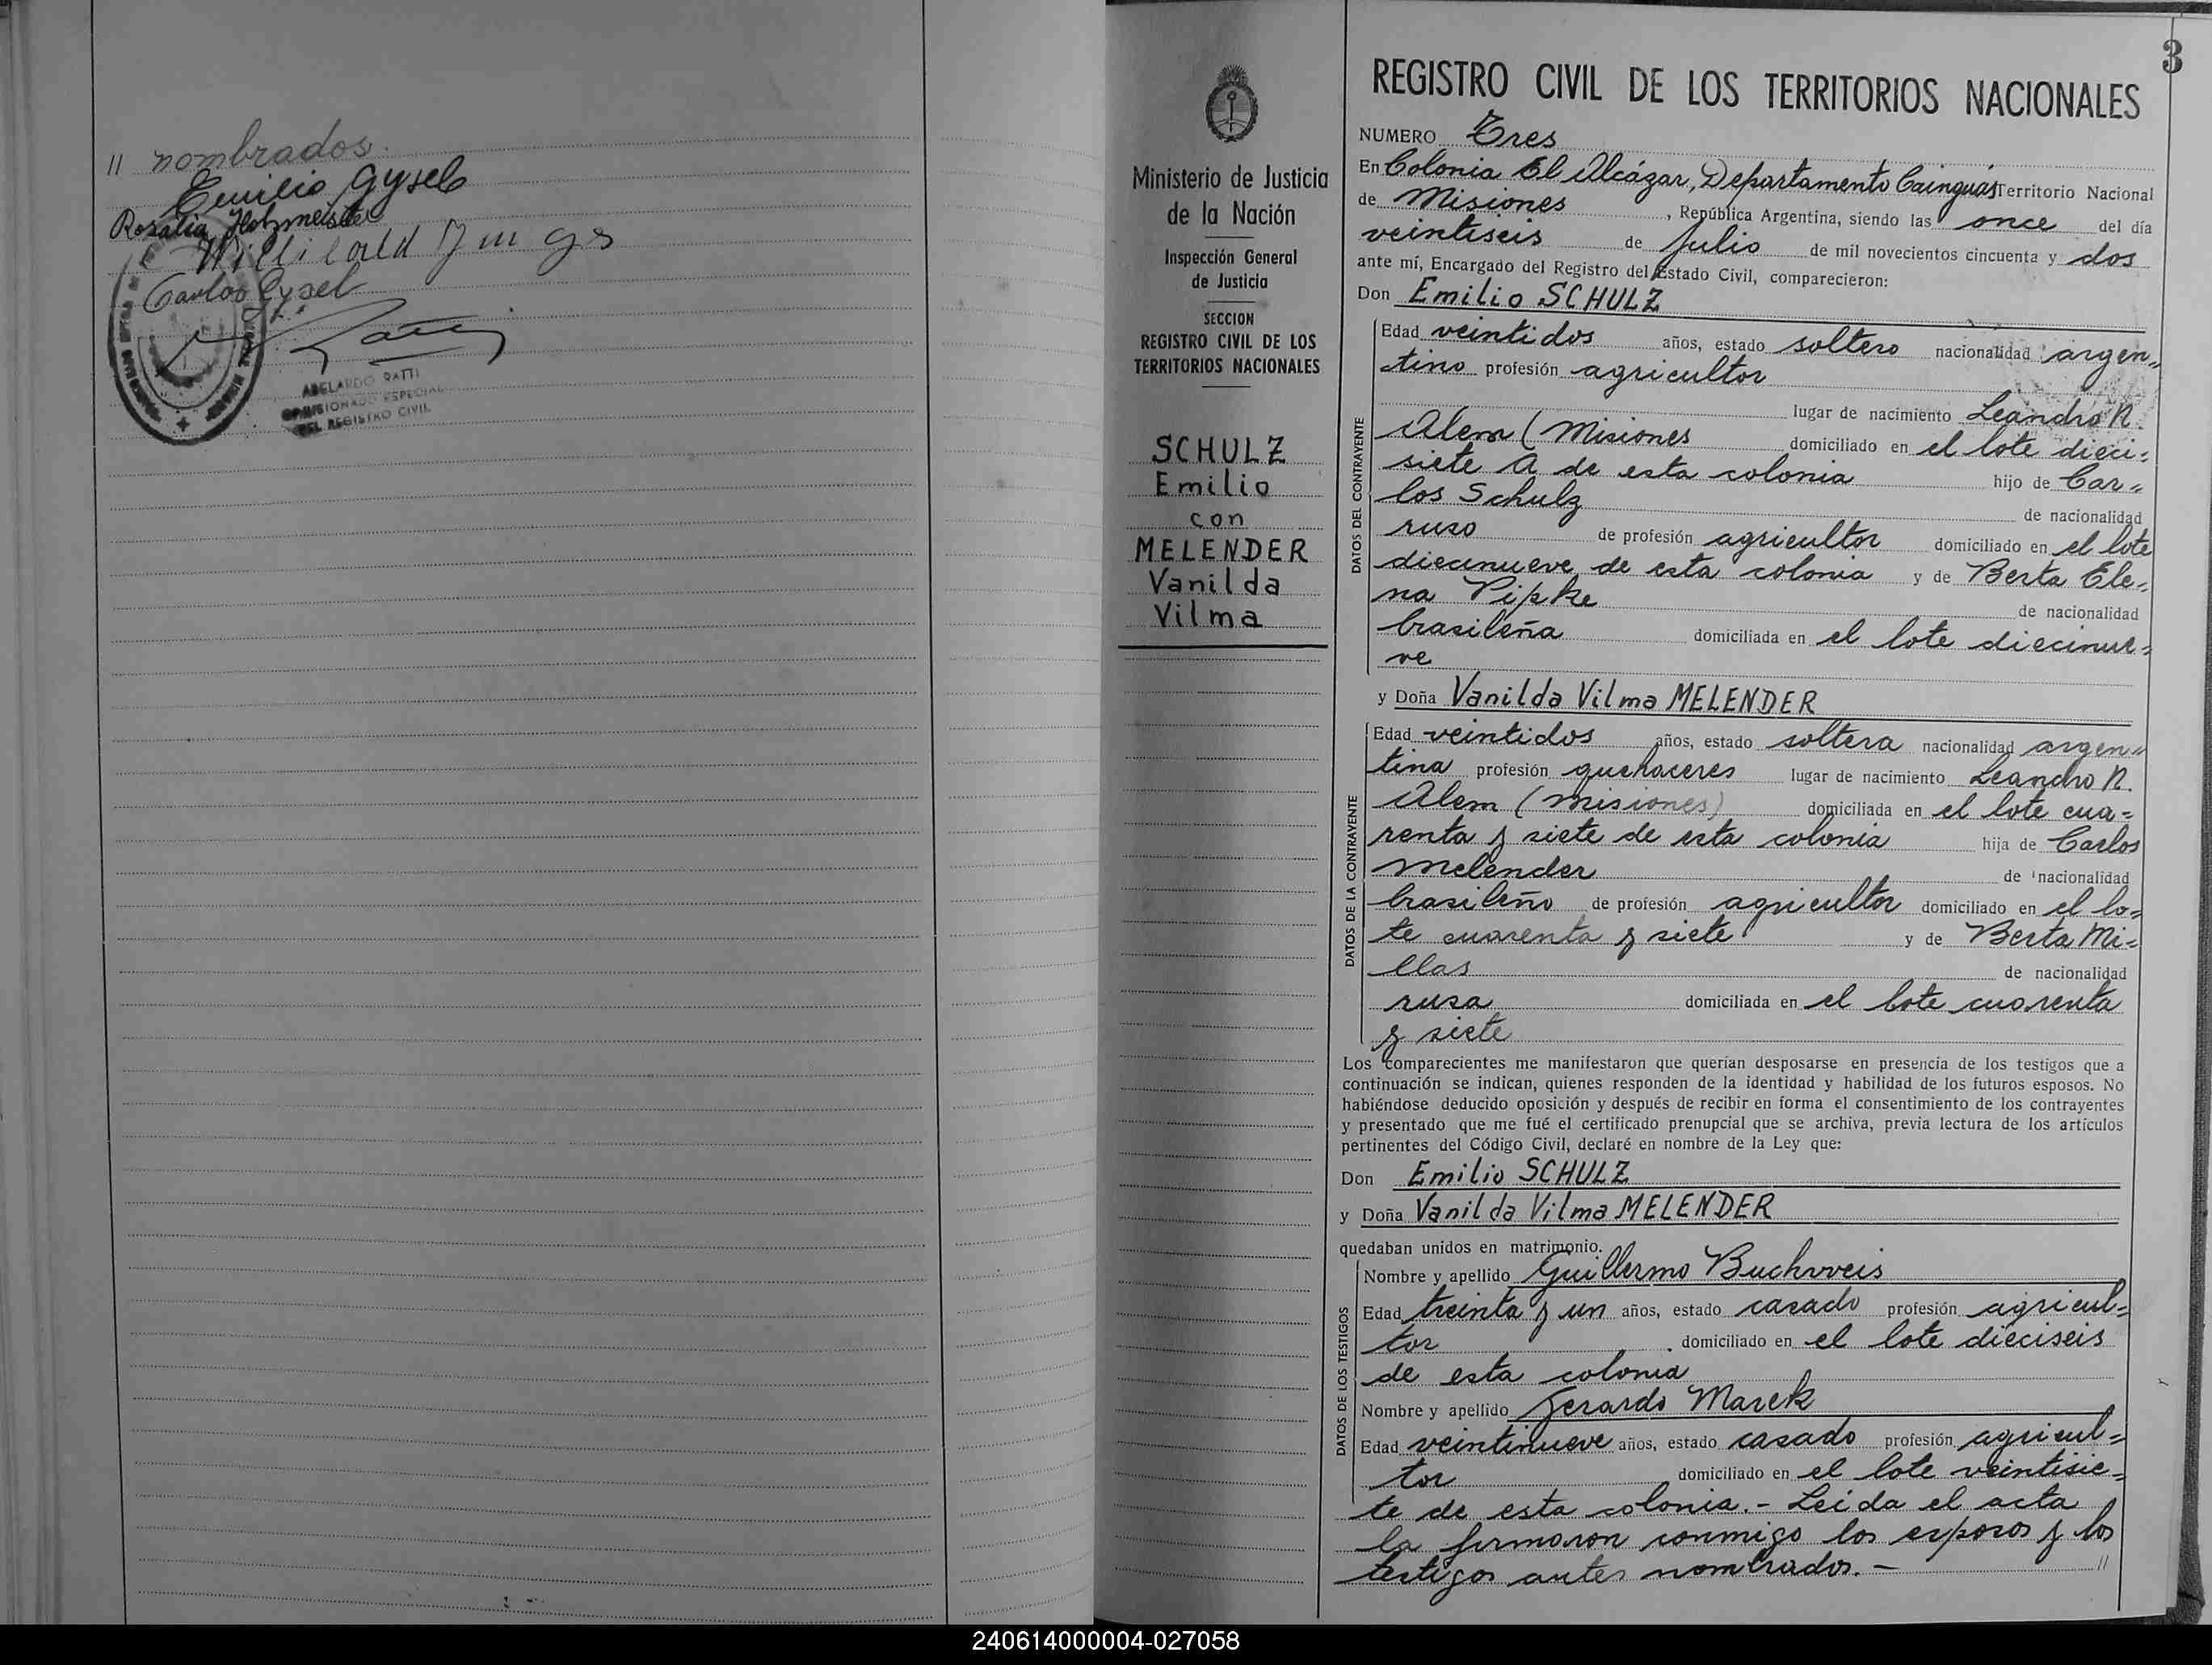 // nombrados.
Emilio Gysel
Rosalia Holzmeister
Carlos Gysel
ABELARDO RATTI
COMISIONADO ESPECIAL
DEL REGISTRO CIVIL
3
Ministerio de Justicia
de la Nación
Inspección General
de Justicia
SECCION
REGISTRO CIVIL DE LOS
TERRITORIOS NACIONALES
SCHULZ
Emilio
con
MELENDER
Vanilda
Vilma
REGISTRO CIVIL DE LOS TERRITORIOS NACIONALES
NUMERO Tres
En Colonia El Alcázar, Departamento Cainguás Territorio Nacional
de Misiones, República Argentina, siendo las once del día
veintiseis de Julio de mil novecientos cincuenta y dos
ante mí, Encargado del Registro del Estado Civil, comparecieron:
Don Emilio SCHULZ
DATOS DEL CONTRAYENTE
Edad veintidos años, estado soltero nacionalidad argen=
tino profesión agricultor
lugar de nacimiento Leandro N.
Alem (Misiones domiciliado en el lote dieci=
siete A de esta colonia hijo de Car=
los Schulz de nacionalidad
ruso de profesión agricultor domiciliado en el lote
diecinueve de esta colonia y de Berta Ele=
na Pipke de nacionalidad
brasileña domiciliada en el lote diecinue=
ve
y Doña Vanilda Vilma MELENDER
DATOS DE LA CONTRAYENTE
Edad veintidos años, estado soltera nacionalidad argen=
tina profesión quehaceres lugar de nacimiento Leandro N.
Alem (misiones) domiciliada en el lote cua=
renta y siete de esta colonia hija de Carlos
Melender de nacionalidad
brasileño de profesión agricultor domiciliado en el lo=
te cuarenta y siete y de Berta Mi=
llas de nacionalidad
rusa domiciliada en el lote cuarenta
y siete
Los comparecientes me manifestaron que querían desposarse en presencia de los testigos que a
continuación se indican, quienes responden de la identidad y habilidad de los futuros esposos. No
habiéndose deducido oposición y después de recibir en forma el consentimiento de los contrayentes
y presentado que me fué el certificado prenupcial que se archiva, previa lectura de los artículos
pertinentes del Código Civil, declaré en nombre de la Ley que:
Don Emilio SCHULZ
y Doña Vanilda Vilma MELENDER
quedaban unidos en matrimonio.
DATOS DE LOS TESTIGOS
Nombre y apellido Guillermo Buchvveis
Edad treinta y un años, estado casado profesión agricul=
tor domiciliado en el lote dieciseis
de esta colonia
Nombre y apellido Gerardo Marek
Edad veintinueve años, estado casado profesión agricul=
tor domiciliado en el lote veintisie=
te de esta colonia.- Leida el acta
la firmaron conmigo los esposos y los
testigos antes nombrados.- //
240614000004-027058